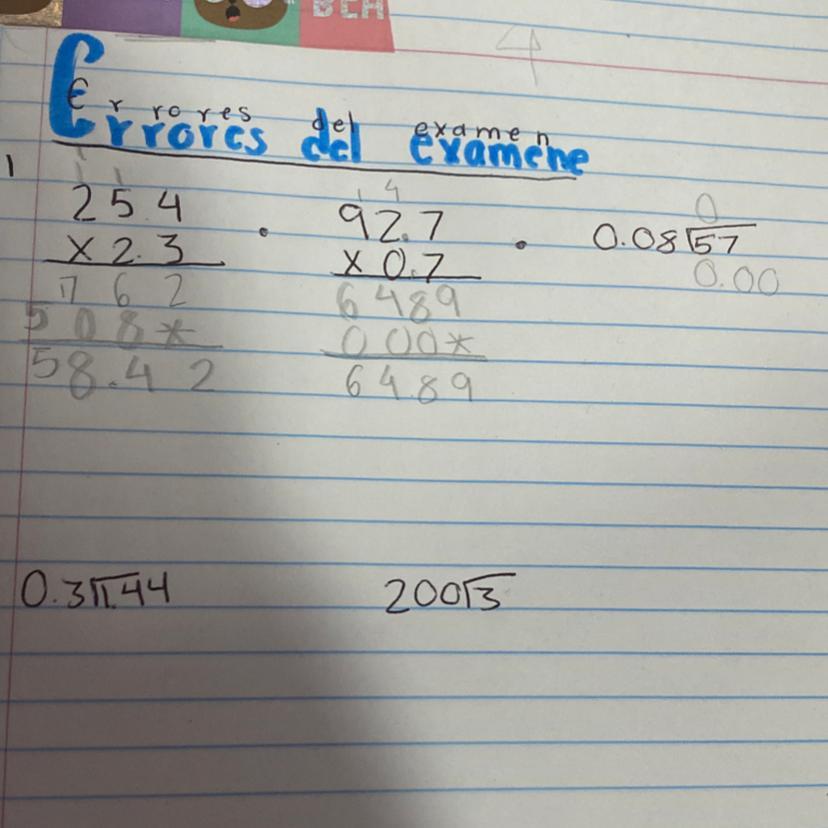 BEA
4
Errores del examen
Errores del examene
1
1 1
254
x 2.3
762
508*
58.42
.
1 4
92.7
x 0.7
6489
000*
64.89
.
0
0.08⟌57
0.00
0.3⟌1.44
200⟌3